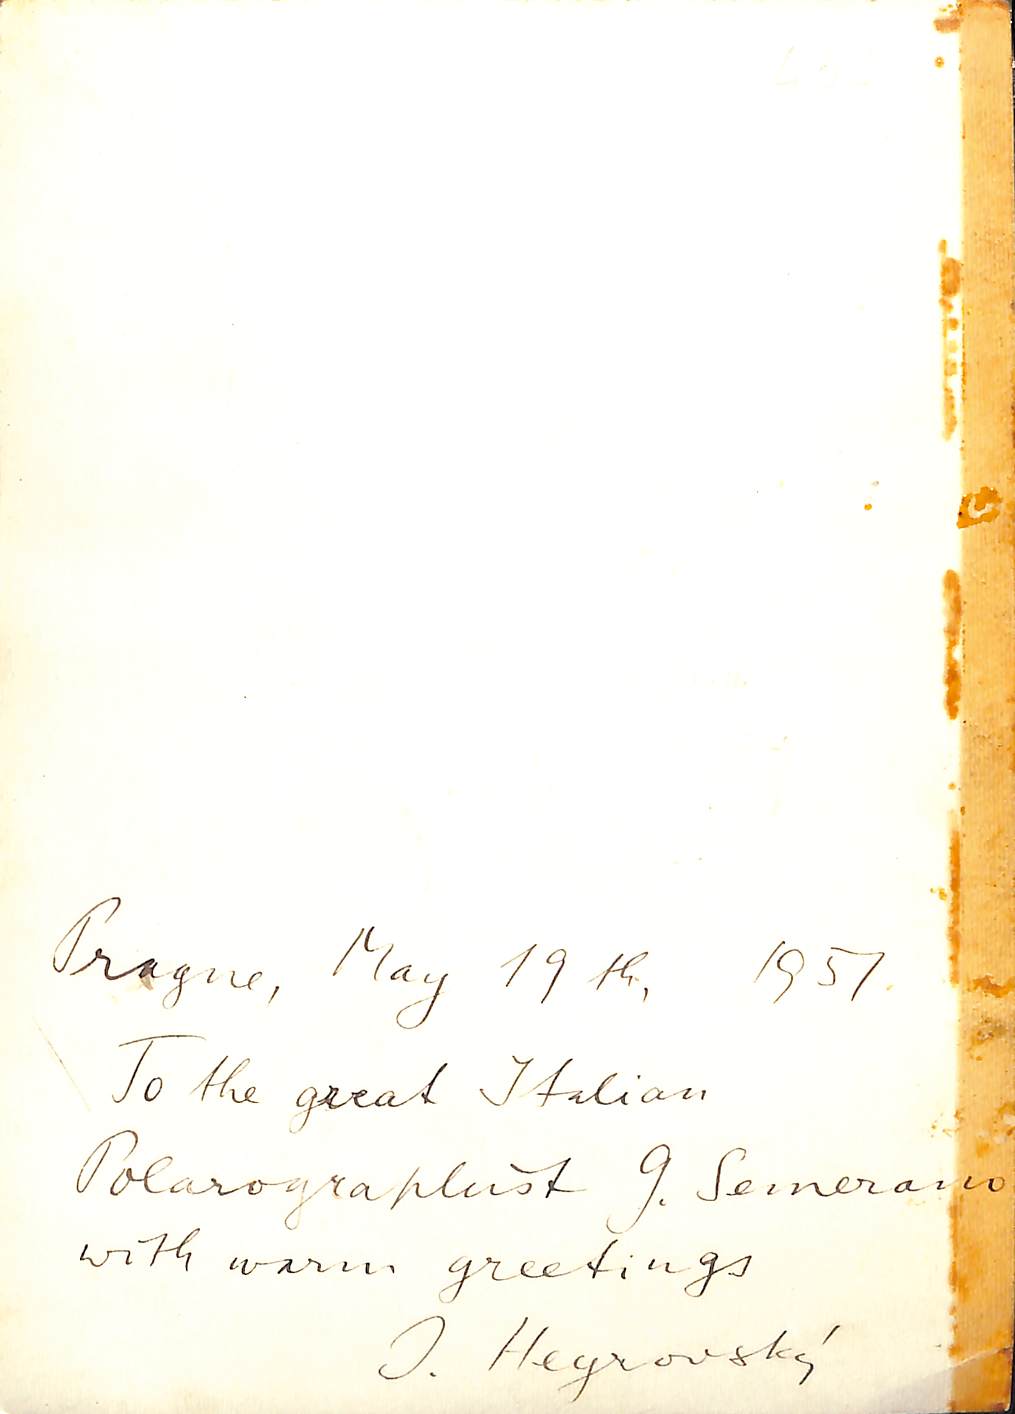 Prague, May 19th, 1951.
To the great Italian
Polarographist G. Semerano
with warm greetings
J. Heyrovský